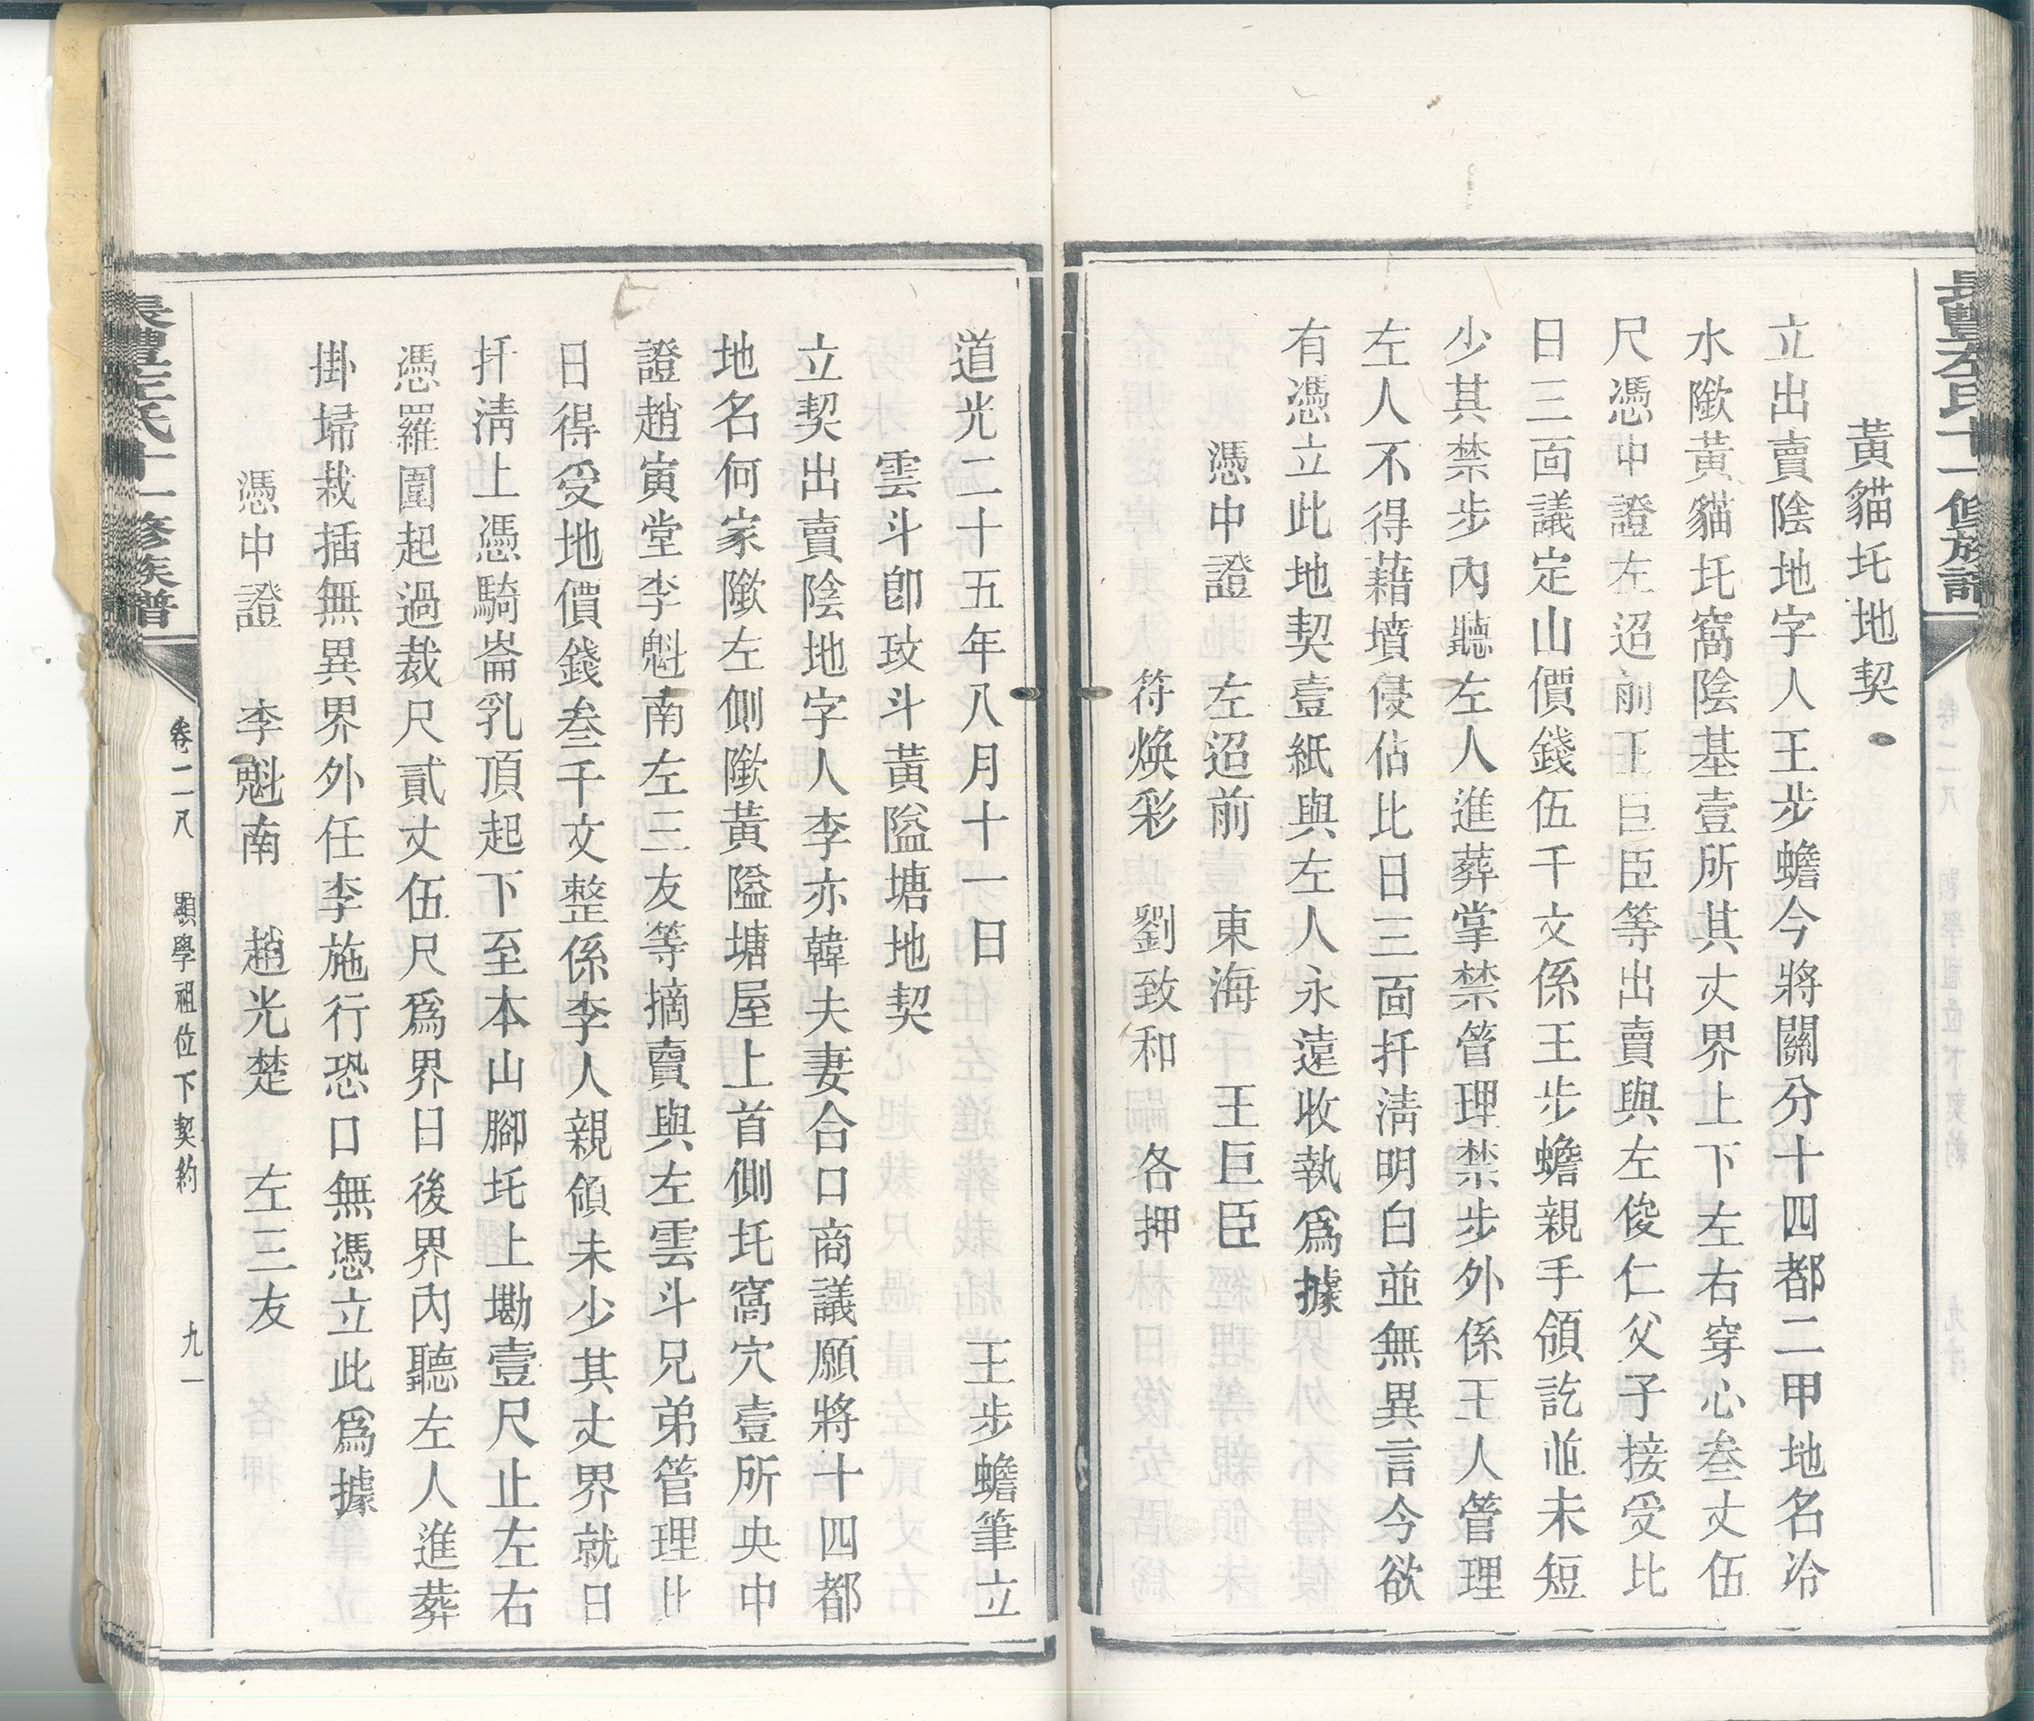 長豐左氏十一修族譜
黃貓圫地契
立出賣陰地字人王步蟾今將關分十四都二甲地名冷
水隞黃貓圫窩陰基壹所其丈界上下左右穿心叁丈伍
尺憑中證左迢前王巨臣等出賣與左俊仁父子接受比
日三面議定山價錢伍千文係王步蟾親手領訖並未短
少其禁步內聽左人進葬掌禁管理禁步外係王人管理
左人不得藉墳侵佔比日三面扦淸明白並無異言今欲
有憑立此地契壹紙與左人永遠收執爲據
憑中證 左迢前 東海 王巨臣
符煥彩 劉致和 各押
道光二十五年八月十一日 王步蟾筆立
雲斗卽玟斗黃隘塘地契
立契出賣陰地字人李亦韓夫妻合口商議願將十四都
地名何家隞左側隞黃隘塘屋上首側圫窩穴壹所央中
證趙寅堂李魁南左三友等摘賣與左雲斗兄弟管理比
日得受地價錢叁千文整係李人親領未少其丈界就日
扦淸上憑騎崙乳頂起下至本山腳圫上墈壹尺止左右
憑羅圍起過裁尺貳丈伍尺爲界日後界內聽左人進葬
掛掃栽插無異界外任李施行恐口無憑立此爲據
憑中證 李魁南 趙光楚 左三友
長豐左氏十一修族譜 卷二八 顯學祖位下契約 九一